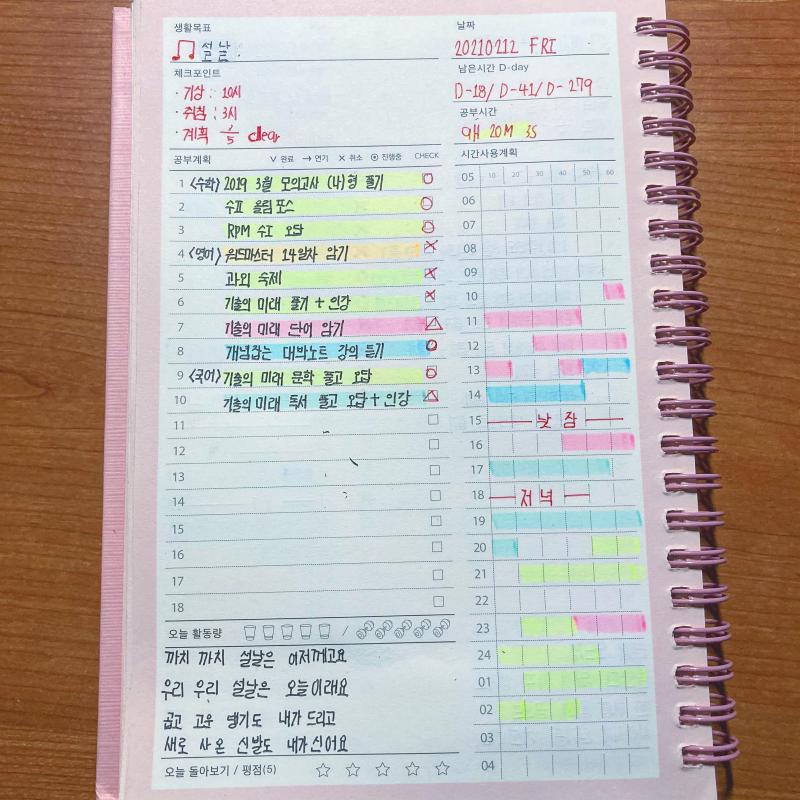 생활목표
설날
체크포인트
· 기상 : 10시
· 취침 : 3시
· 계획 /5 clear
날짜
20210212 FRI
남은시간 D-day
D-18/ D-41/ D-279
공부시간
9H 20M 3S
공부계획 ∨ 완료 → 연기 × 취소 ⊙ 진행중 CHECK
1 <수학> 2019 3월 모의고사 (나)형 풀기
2 수Ⅱ 올림포스
3 RPM 수Ⅰ 오답
4 <영어> 워드마스터 14일차 암기
5 과외 숙제
6 기출의 미래 풀기 + 인강
7 기출의 미래 단어 암기
8 개념잡는 대박노트 강의 듣기
9 <국어> 기출의 미래 문학 풀고 오답
10 기출의 미래 독서 풀고 오답 + 인강
11
12
13
14
15
16
17
18
시간사용계획
05 10 20 30 40 50 60
06
07
08
09
10
11
12
13
14
15 낮잠
16
17
18 저녁
19
20
21
22
23
24
01
02
03
04
오늘 활동량 /
까치 까치 설날은 어저께고요
우리 우리 설날은 오늘이래요
곱고 고운 댕기도 내가 드리고
새로 사 온 신발도 내가 신어요
오늘 돌아보기 / 평점(5)